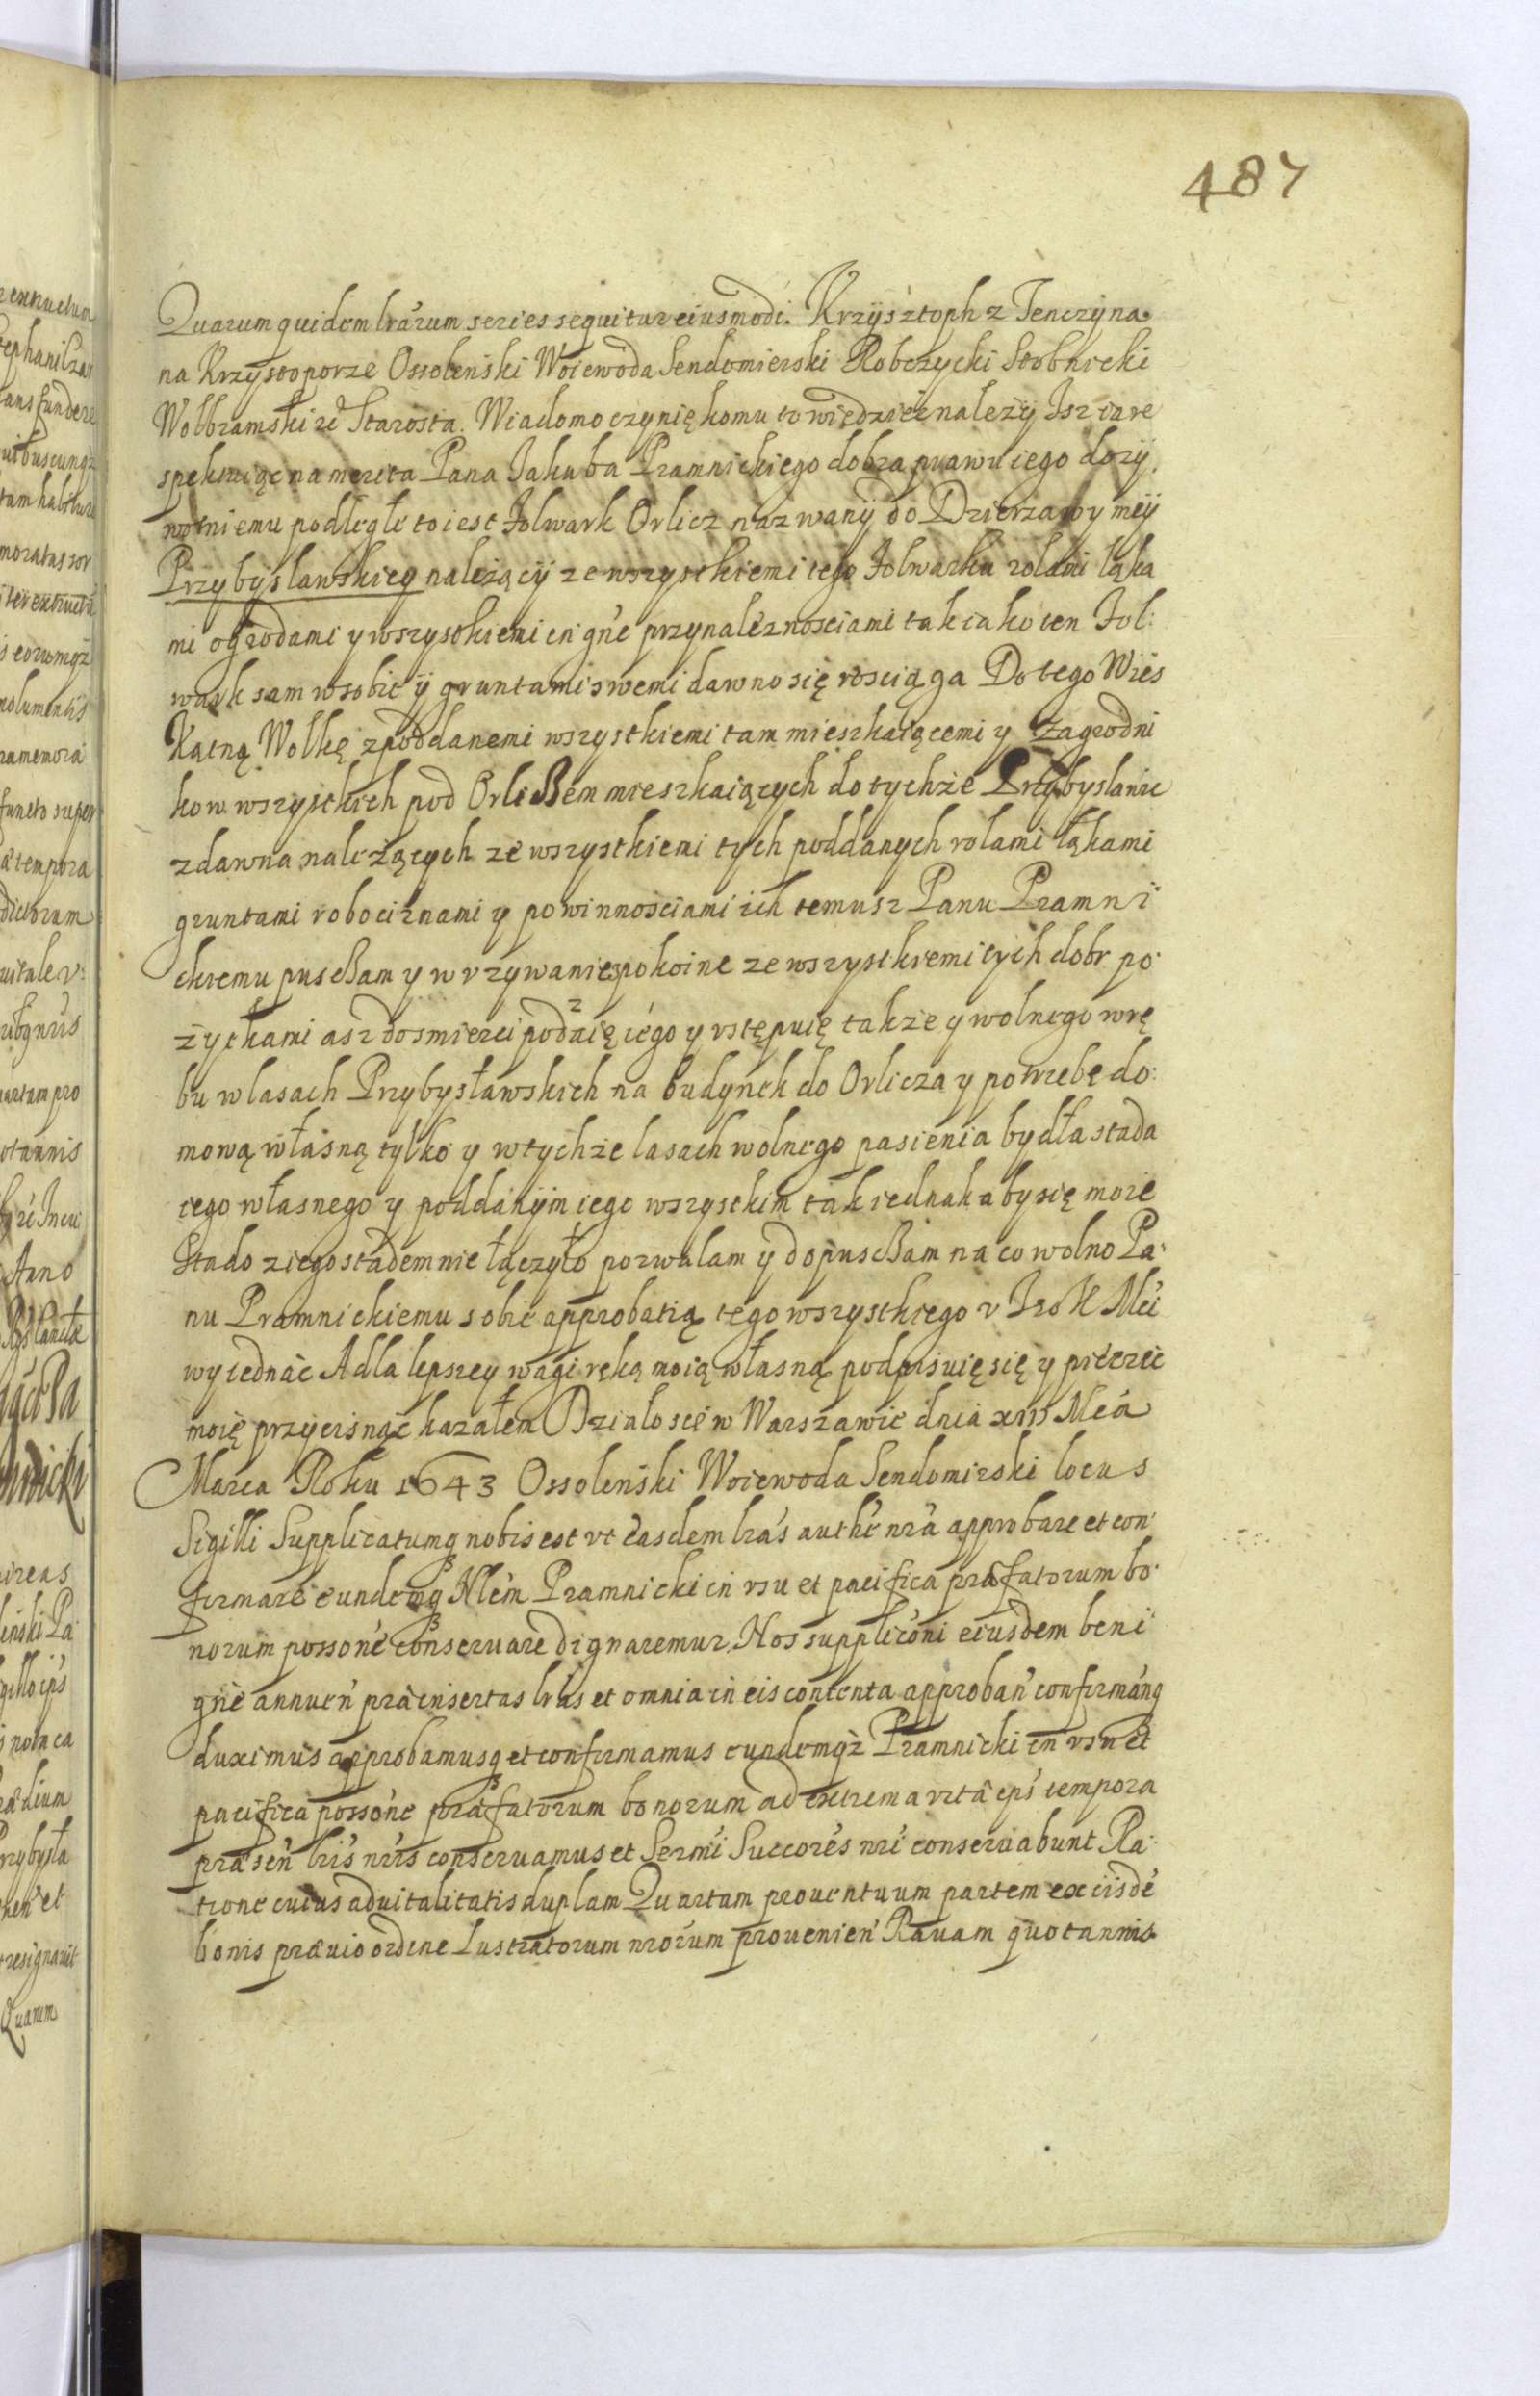 487
Quarum quidem lrarum series sequitur eiusmodi. Krzysztoph z Tenczyna
na Krzysztoporze Ossolenski Woiewoda Sendomierski Robczycki Stobnicki
Wolbramski zc Starosta. Wiadomo czynię komu to wiedzieć nalezy Isz ia re
spektuiąc na merita Pana Jakuba Pramnickiego dobra prawu iego dozy
wotniemu podległe to iest folwark Orlicz nazwany do Dzierzawy mey
Przybyslawskiey nalezący ze wszystkiemi tego folwarku rolami łąka
mi ogrodami y wszystkiemi in gñe przynaleznosciami tak iako ten fol:
wark sam w sobie y gruntami swemi dawno się rosciąga Do tego Wies
Kątną Wolkę z poddanemi wszystkiemi tam mieszkaiącemi y Zagrodni
kow wszystkich pod Orliczem mieszkaiących do tychze Przybyslanic
zdawna nalezących ze wszystkiemi tych poddanych rolami łąkami
gruntami robociznami y powinnosciami ich temusz Panu Pramni
ckiemu pusczam y w vzywanie spokoine ze wszystkiemi tych dobr po
zytkami asz do smierci podaię iego y vstępuię takze y wolnego wrę
bu w lasach Przybysławskich na budynek do Orlicza y potrzebę do:
mową własną tylko y w tychze lasach wolnego pasienia bydła stada
iego własnego y poddanym iego wszystkim tak iednak aby się moie
Stado z iego stadem nie łączyło pozwalam y dopusczam na co wolno Pa
nu Pramnickiemu sobie approbatią tego wszystkiego v J Kro K Mci
wyiednac A dla lepszey wagi ręką moią własną podpisuię się y pieczęć
moię przycisnąc kazałem Działo się w Warszawie dnia xiii Mca
Marca Roku 1643 Ossolenski Woiewoda Sendomirski locus
Sigilli Supplicatumq nobis est vt easdem lras authe nra approbare et con
firmare eundemq Nlem Pramnicki in vsu et pacifica præfatorum bo
norum possone conseruare dignaremur. Nos supplicóni eiusdem beni
gne annueñ præinsertas lras et omnia in eis contenta approbañ confirmanq
duximus approbamusq et confirmamus eundemqz Pramnicki in vsu et
pacifica possone præfatorum bonorum ad extrema vitæ eps tempora
præseñ lris nris conseruamus et Sermi Succores nri conseruabunt Ra
tione cuius aduitalitatis duplam Quartam prouentuum partem ex iisde
bonis præuio ordine Lustratorum nrorum proueñien Rauam quotannis